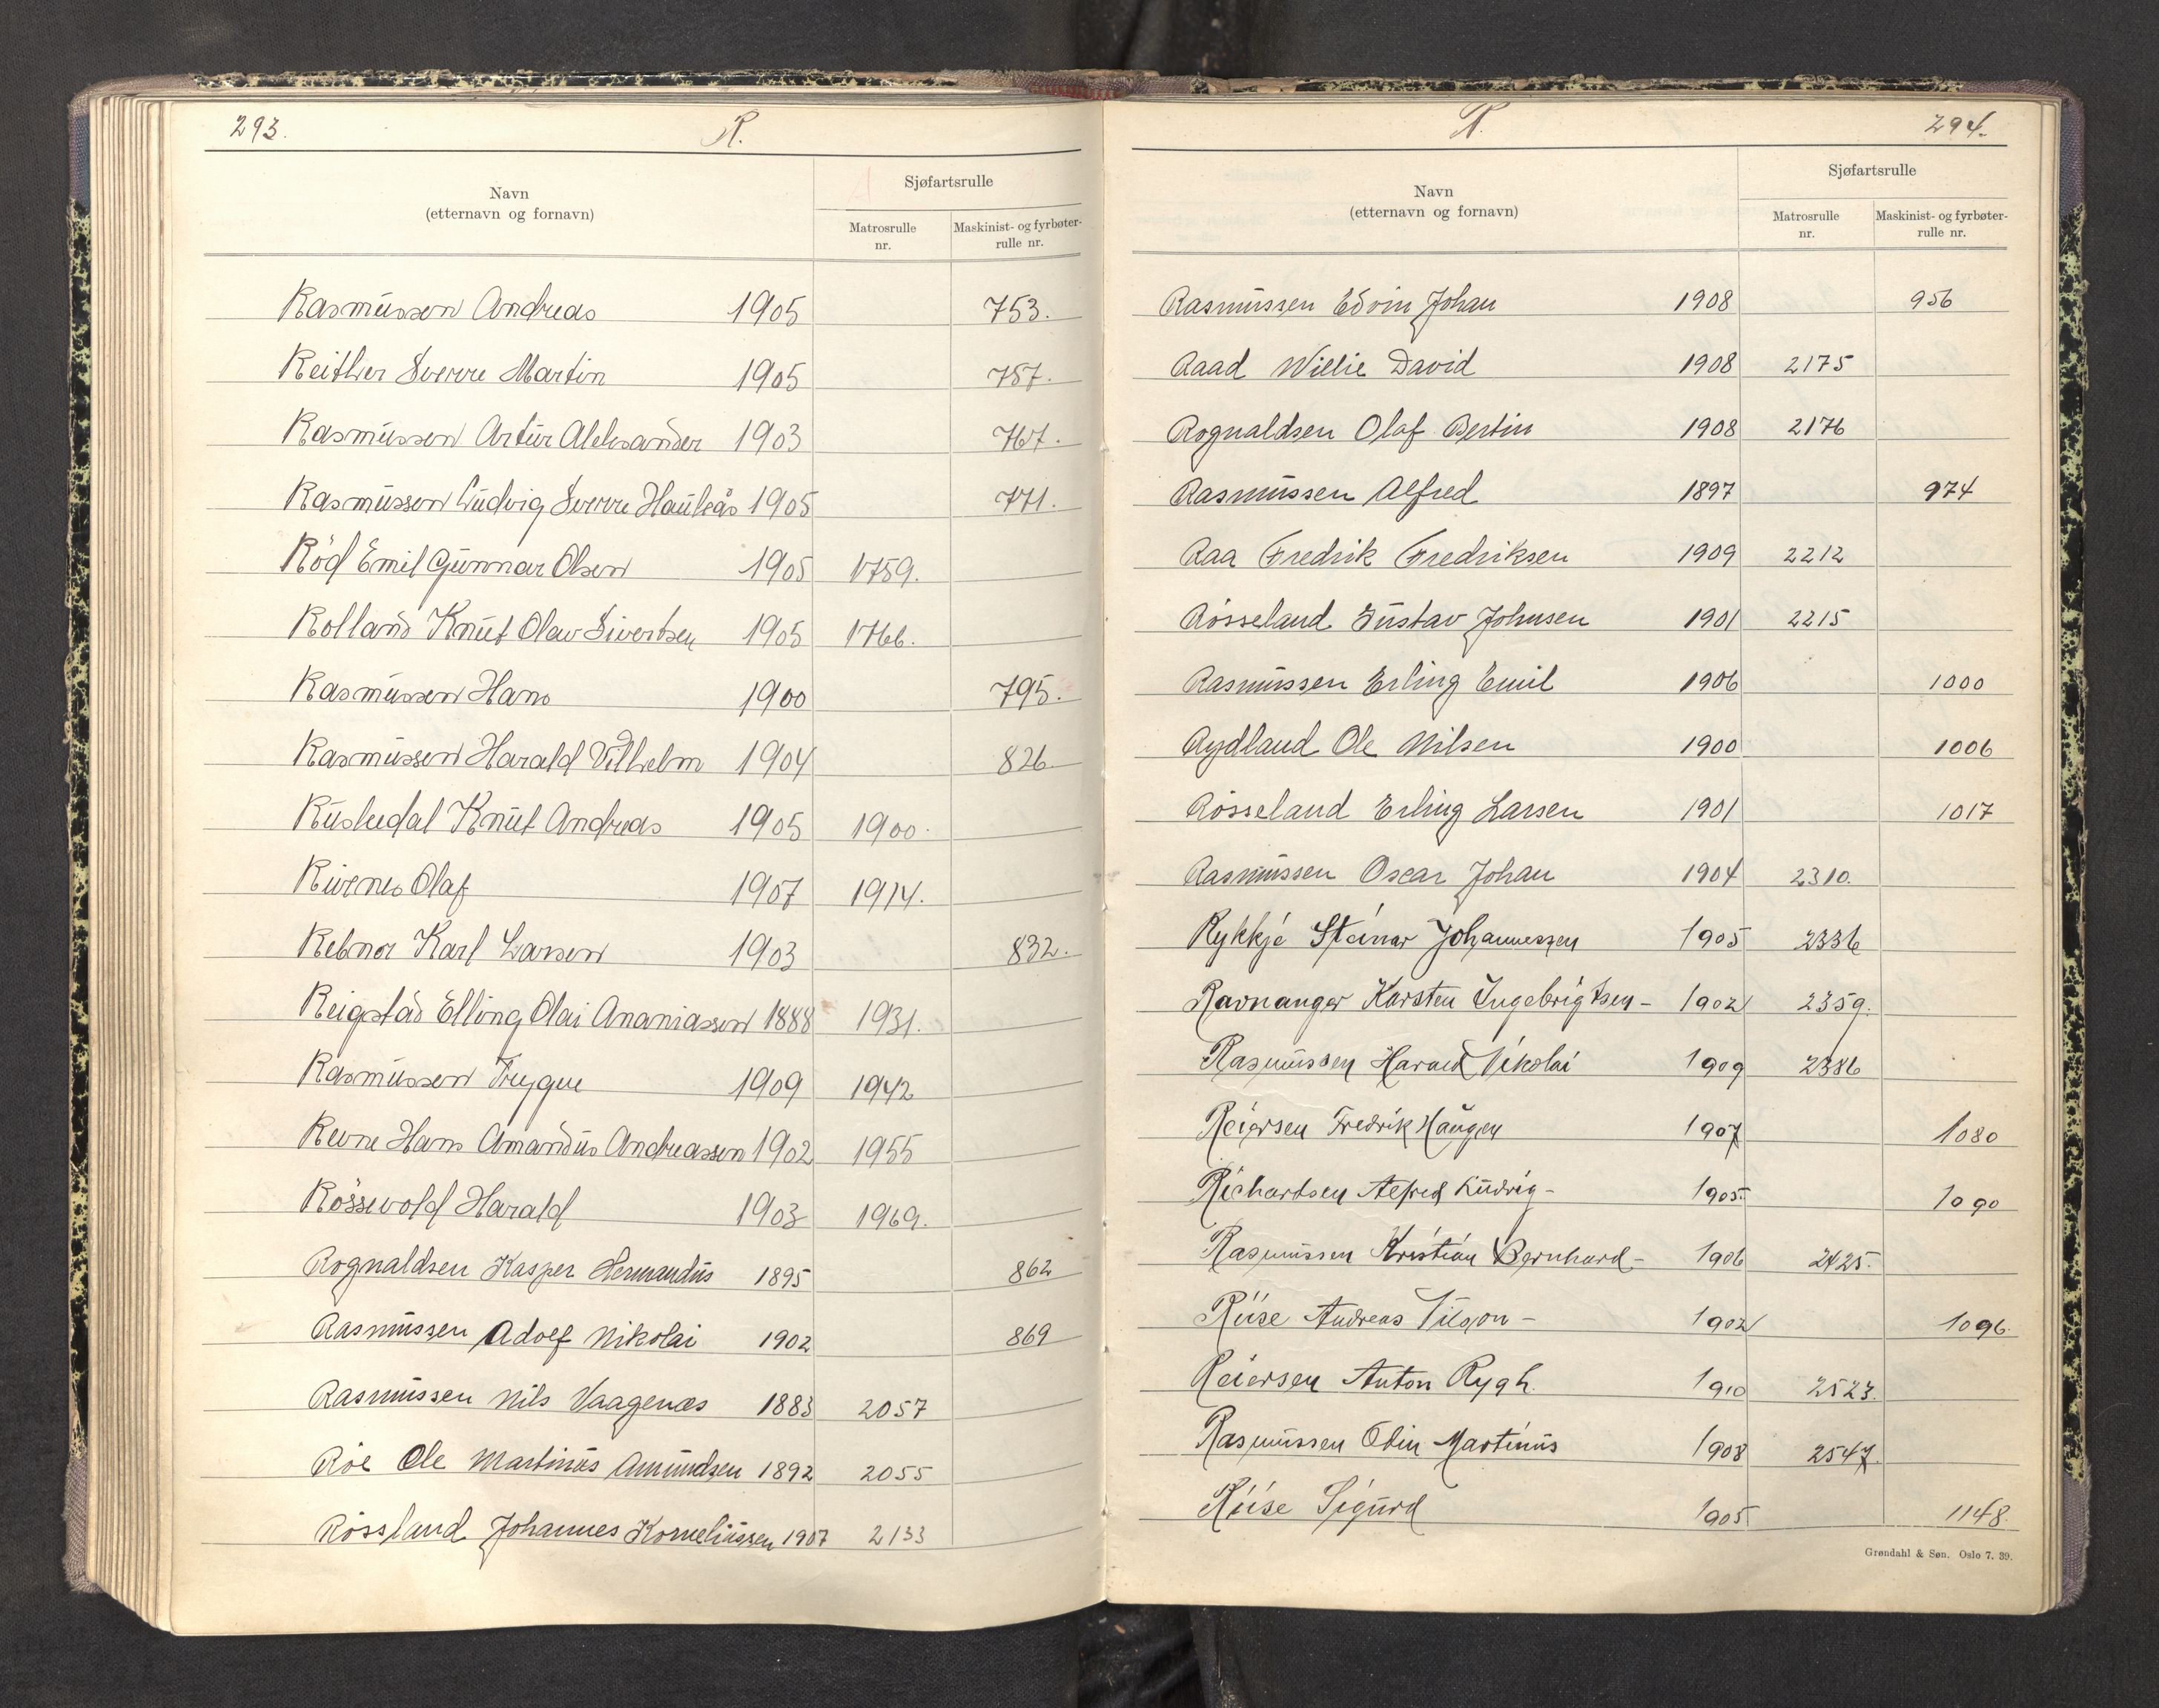 293.
R.
Navn
(etternavn og fornavn)
Sjøfartsrulle
Matrosrulle nr.
Maskinist- og fyrbøter-rulle nr.
Rasmussen Andreas 1905 753.
Reither Sverre Martin 1905 757.
Rasmussen Artur Aleksander 1903 767.
Rasmussen Ludvig Sverre Haukås 1905 771.
Röd Emil Gunnar Olsen 1905 1759.
Rolland Knut Olav Sivertsen 1905 1766.
Rasmussen Hans 1900 795.
Rasmussen Harald Vilhelm 1904 826
Rusledal Knut Andreas 1905 1900.
Olaf 1907 1914.
Rebnor Karl Larsen 1903 832.
Reigstad Elling Olai Ananiassen 1888 1931.
Rasmussen Trygve 1909 1942
Revne Hans Amandus Andreassen 1902 1955
Rössevold Harald 1903 1969.
Rognaldsen Kasper Hermandus 1895 862
Rasmussen Adolf Nikolai 1902 869
Rasmussen Nils Vaagenæs 1883 2057
Röe Ole Martinus Amundsen 1892 2055
Rössland Johannes Korneliussen 1907 2133
R.
294.
Navn
(etternavn og fornavn)
Sjøfartsrulle
Matrosrulle nr.
Maskinist- og fyrbøter-rulle nr.
Rasmussen Edvin Johan 1908 956
Raad Willie David 1908 2175
Rognaldsen Olaf Bertin 1908 2176
Rasmussen Alfred 1897 974
Raa Fredrik Fredriksen 1909 2212
Rösseland Gustav Johnsen 1901 2215
Rasmussen Erling Emil 1906 1000
Rydland Ole Nilsen 1900 1006
Rösseland Erling Larsen 1901 1017
Rasmussen Oscar Johan 1904 2310.
Rykkje Steinar Johannessen 1905 2336
Ravnanger Karsten Ingebrigtsen - 1902 2359.
Rasmussen Harald Nikolai 1909 2386
Reiersen Fredrik Haugen 1907 1080
Richardsen Alfred Ludvig - 1905. 1090
Rasmussen Kristian Bernhard - 1906 2425.
Riise Andreas - 1902 1096.
Reiersen Anton Rygh. 1910 2523.
Rasmussen Odin Martinus 1908 2547.
Riise Sigurd 1905 1148.
Grøndahl & Søn. Oslo 7. 39.